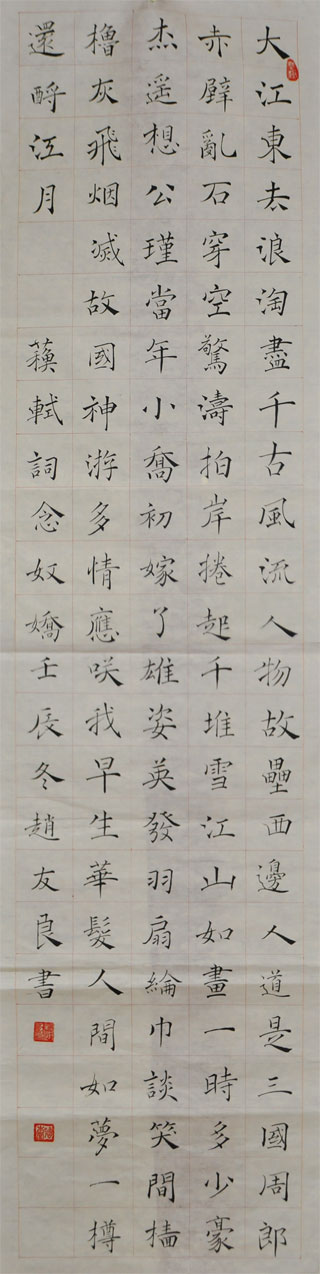 大江東去浪淘盡千古風流人物故壘西邊人道是三國周郎
赤壁亂石穿空驚濤拍岸捲起千堆雪江山如畫一時多少豪
杰遥想公瑾當年小喬初嫁了雄姿英發羽扇綸巾談笑間檣
櫓灰飛烟滅故國神游多情應咲我早生華髮人間如夢一樽
還酹江月
蘓軾詞念奴嬌壬辰冬趙友良書